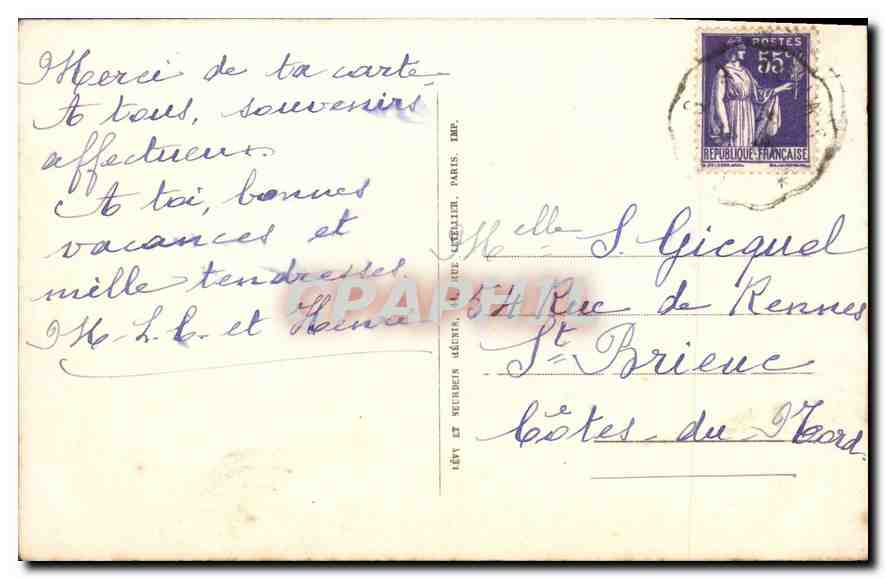 Merci de ta carte
A tous, souvenirs
affectueux.
A toi, bonnes
vacances et
mille tendresses.
M. L. C. et
LÉVY ET NEURDEIN RÉUNIS, 44, RUE LETELLIER, PARIS. IMP.
POSTES
55c
RÉPUBLIQUE FRANÇAISE
Melle S. Gicquel
54 Rue de Rennes
St Brieuc
Côtes du Nord
CPAPHIL